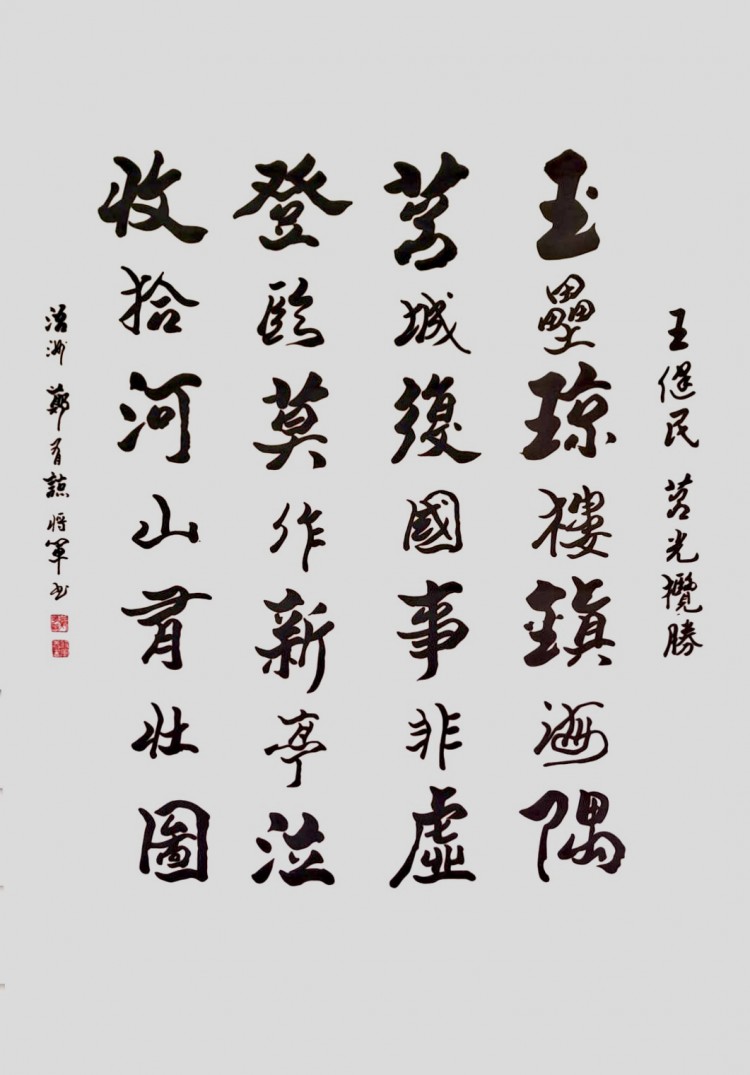 王健民 莒光攬勝
玉壘琼樓鎮海隅
莒城復國事非虛
登臨莫作新亭泣
收拾河山有壯圖
浯洲 鄭有諒將軍書